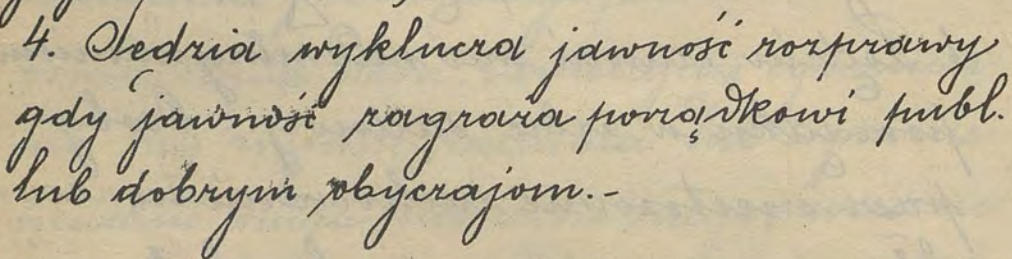 4. Sedzia wyklucza jawność rozprawy
gdy jawność zagraża porządkowi publ.
lub dobrym obyczajom.-